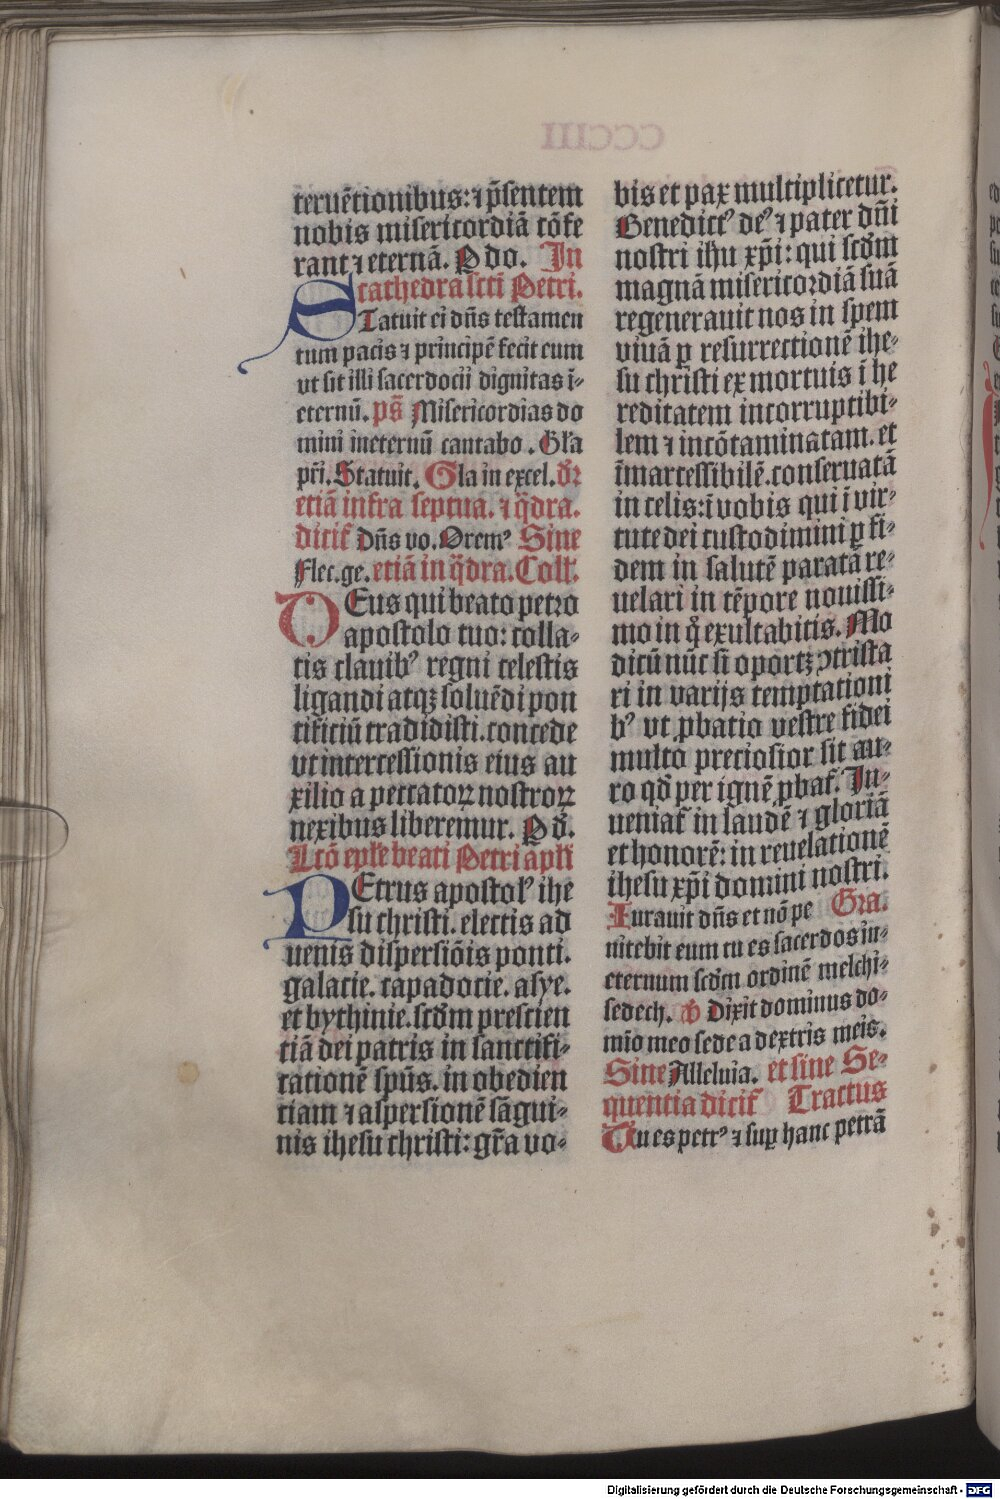 teruētionibus: ⁊ p̄sentem
nobis misericordiā cōfe
rant ⁊ eternā. P do. In
cathedra scti Petri.
STatuit ei dn̄s testamen
tum pacis ⁊ principē fecit eum
vt sit illi sacerdocii dignitas ī-
eternū. ps̄ Misericordias do
mini ineternū cantabo. Gl'a
pr̄i. Statuit. Gla in excel. dr̄
etiā infra septua. ⁊ q̄dra.
dicit᷑ Dn̄s vo. Oremꝰ Sine
Flec. ge. etiā in q̄dra. Coll'.
DEus qui beato petro
apostolo tuo: colla-
tis clauibꝰ regni celestis
ligandi atqꝫ soluēdi pon
tificiū tradidisti. concede
vt intercessionis eius au
xilio a peccatoꝝ nostroꝝ
nexibus liberemur. P d̄.
Lcō ep̄le beati Petri apl'i
PEtrus apostolꝰ ihe
su christi. electis ad
uenis dispersiōis ponti.
galacie. capadocie. asye.
et bythinie. scd̄m prescien
tiā dei patris in sanctifi-
cationē sp̄us. in obedien
tiam ⁊ aspersionē sāgui-
nis ihesu christi: gr̄a vo-
bis et pax multiplicetur.
Benedictꝰ deꝰ ⁊ pater dn̄i
nostri ihu xp̄i: qui scd̄m
magnā misericordiā suā
regenerauit nos in spem
viuā ꝑ resurrectionē ihe-
su christi ex mortuis ī he
reditatem incorruptibi-
lem ⁊ incōtaminatam. et
īmarcessibilē. conseruatā
in celis: ī vobis qui ī vir-
tute dei custodimini ꝑ fi-
dem in salutē paratā re-
uelari in tēpore nouissi-
mo in q̊ exultabitis. Mo
dicū nūc si oportꝫ ↄtrista
ri in varijs temptationi
bꝰ vt ꝓbatio vestre fidei
multo preciosior sit au-
ro qd̄ per ignē ꝓbat᷑. In-
ueniat᷑ in laudē ⁊ gloriā
et honorē: in reuelatione
ihesu xp̄i domini nostri.
Iurauit dn̄s et nō pe Gra.
nitebit eum tu es sacerdos in-
eternum scd̄m ordinē melchi-
sedech. V Dixit dominus do-
mīo meo sede a dextris meis.
Sine Alleluia. et sine Se-
quentia dicit᷑ Tractus
Tu es petrꝰ ⁊ suꝑ hanc petrā
CCCIII
Digitalisierung gefördert durch die Deutsche Forschungsgemeinschaft - DFG